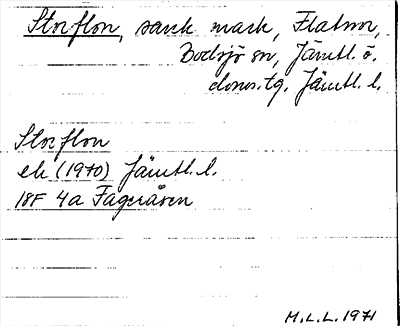 Storflon, sank mark, Flatmor,
Bodsjö sn, Jämtl. ö.
doms.tg. Jämtl. l.
Storflon
ek (1970) Jämtl. l.
18F 4a Fageråsen
M.L.L. 1971